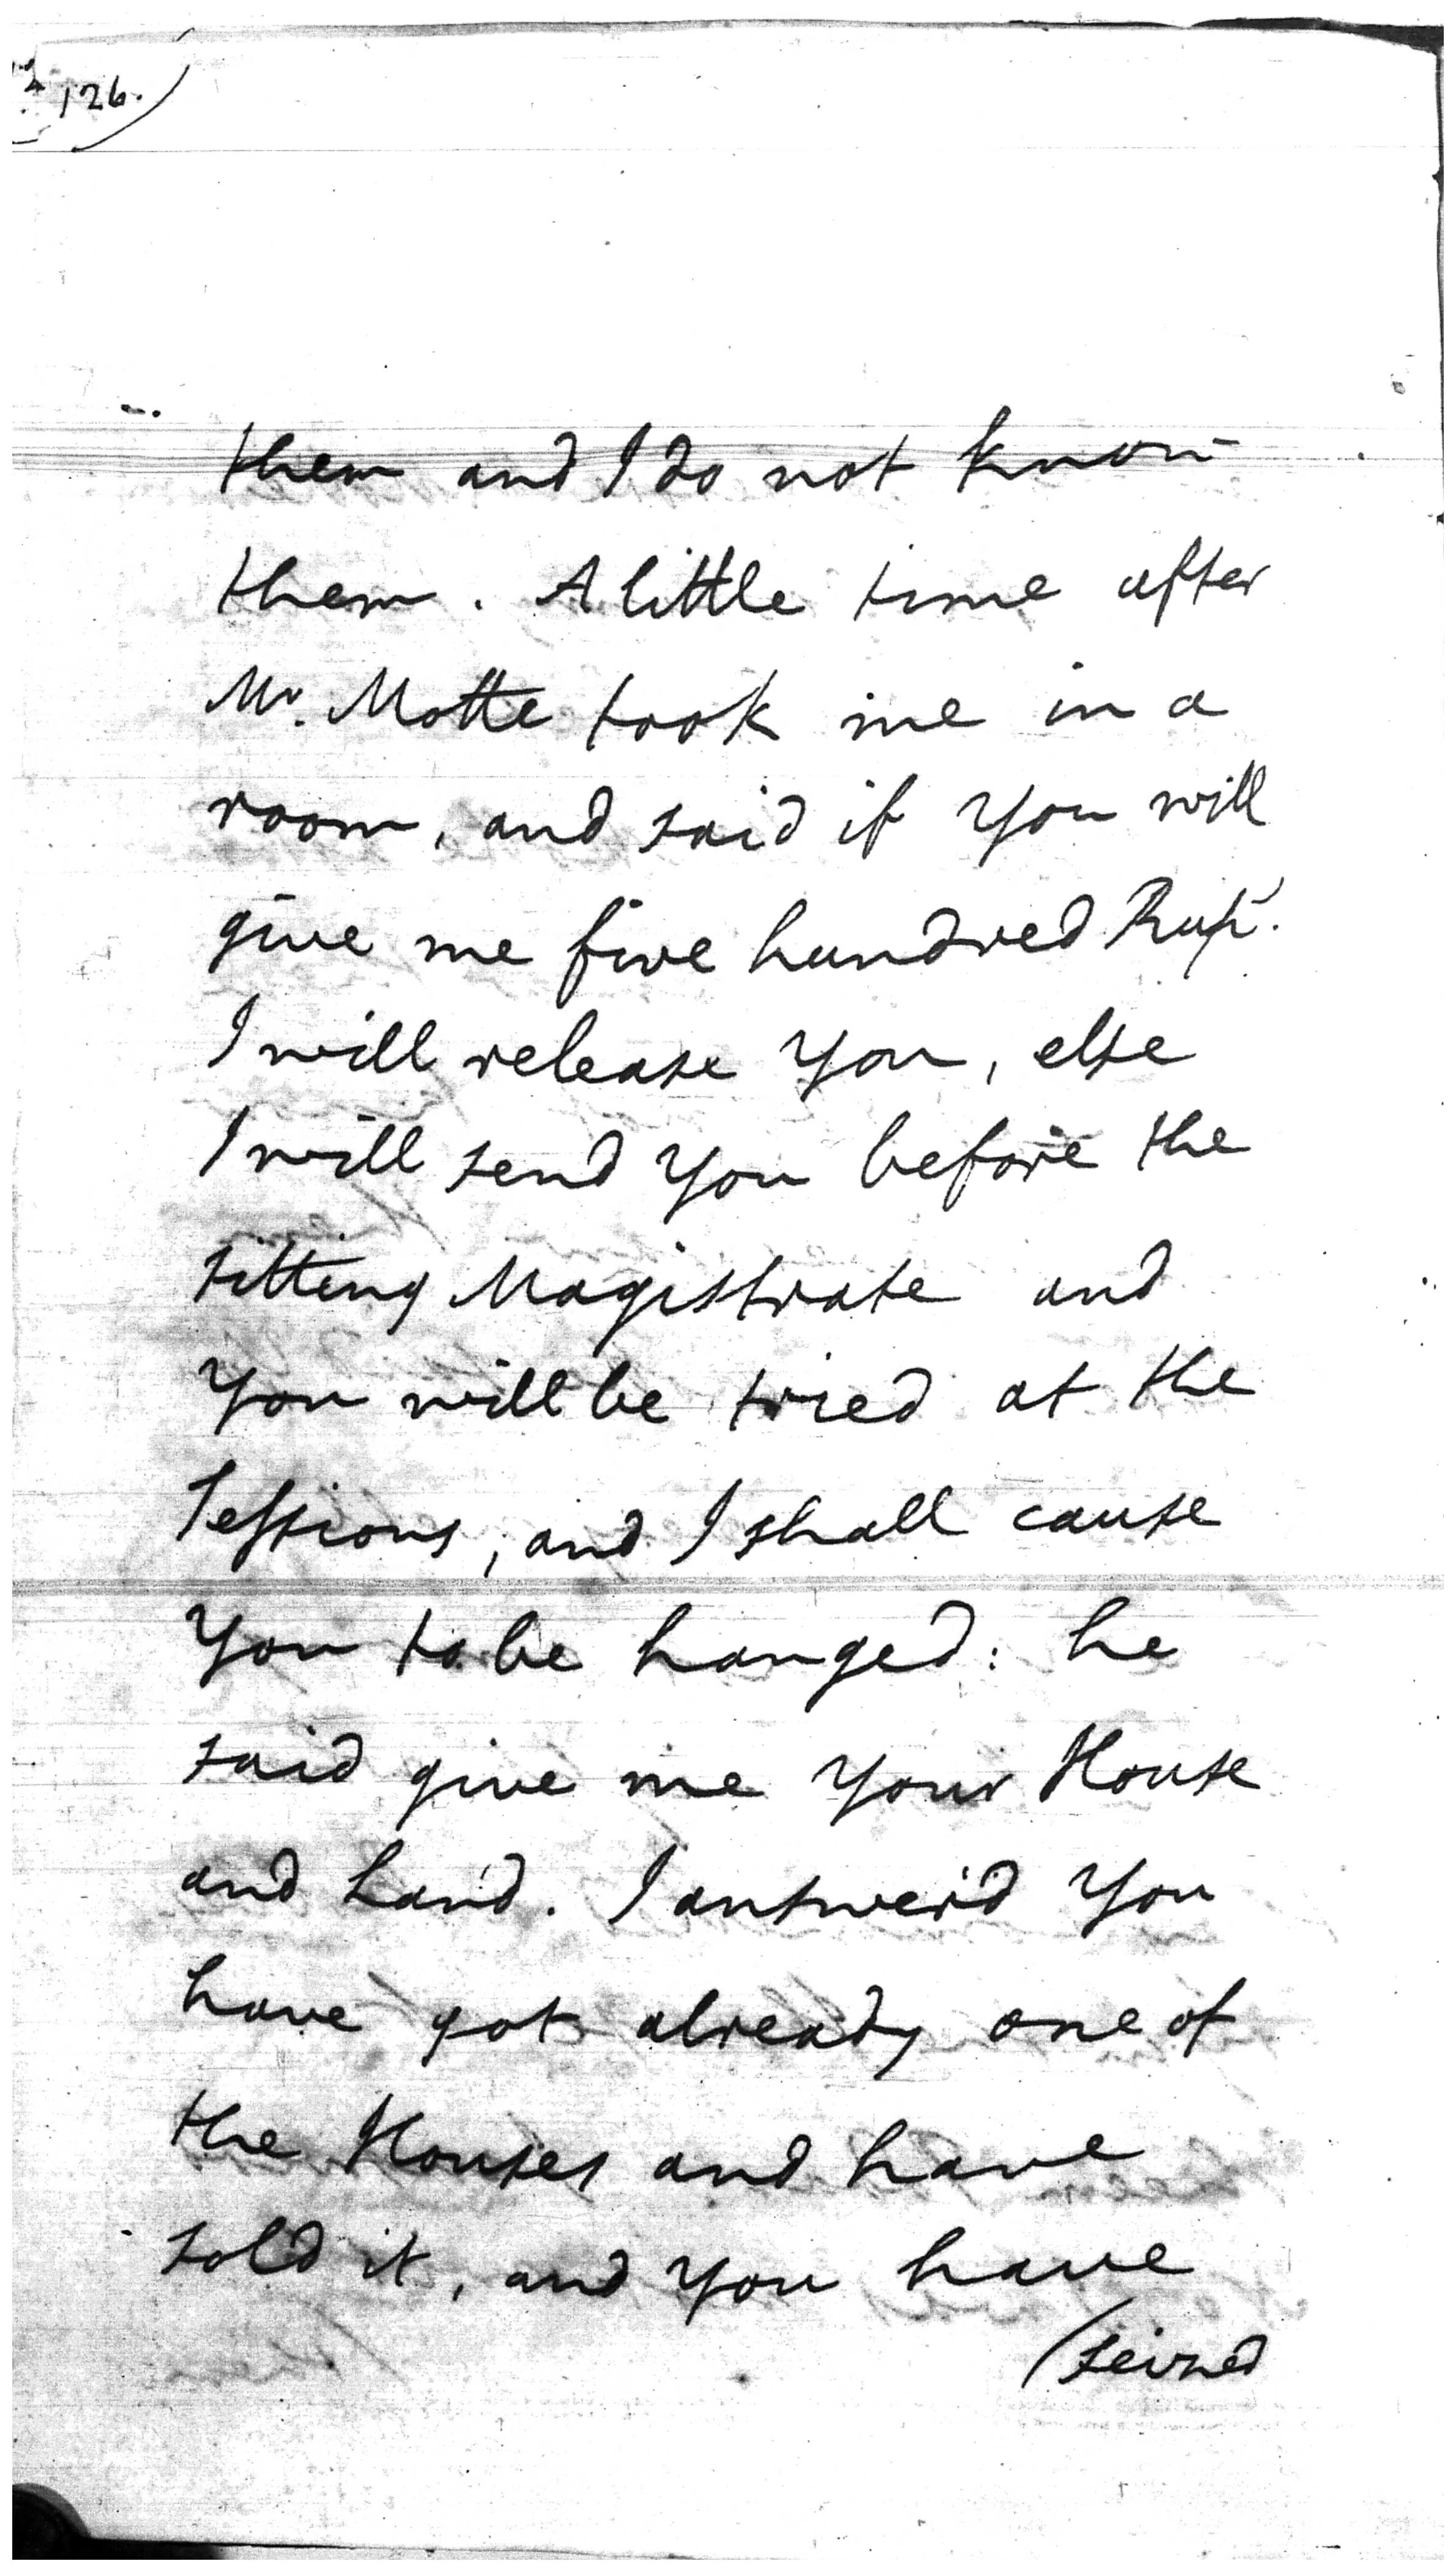 126.
them and I do not know
them. A little time after
Mr. Motte took me in a
room, and said if you will
give me five hundred Rup.
I will release you, else
I will send you before the
sitting Magistrate and
you will be tried at the
Sessions, and I shall cause
you to be hanged: he
said give me your House
and Land. I answer'd you
have got already one of
the Houses and have
sold it, and you have